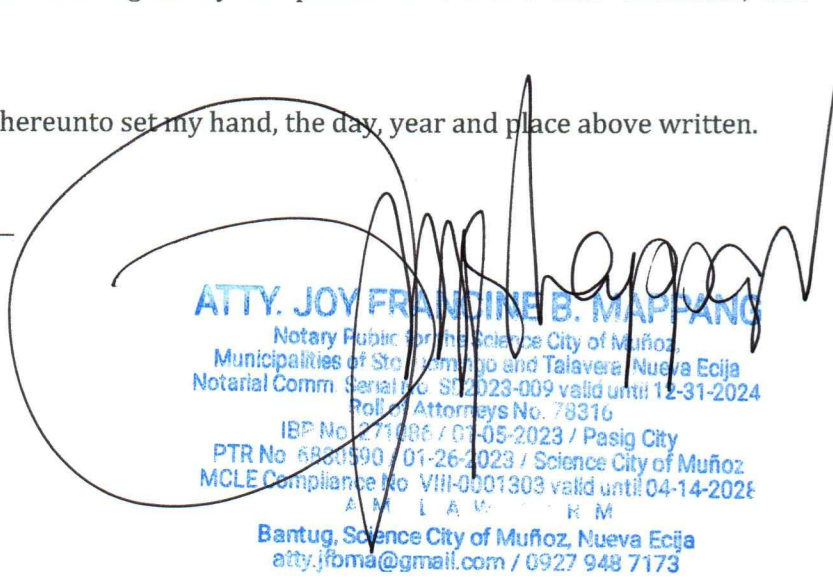 hereunto set my hand, the day, year and place above written.
ATTY. JOY FRANCINE B. MAPPANG
Notary Public for the Science City of Muñoz,
Municipalities of Sto. Domingo and Talavera, Nueva Ecija
Notarial Comm. Serial No. SD2023-009 valid until 12-31-2024
Roll of Attorneys No. 78316
IBP No. 271086 / 01-05-2023 / Pasig City
PTR No 6830590 / 01-26-2023 / Science City of Muñoz
MCLE Compliance No VIII-0001303 valid until 04-14-2028
A M L A W
Bantug, Science City of Muñoz, Nueva Ecija
atty.jfbma@gmail.com / 0927 948 7173